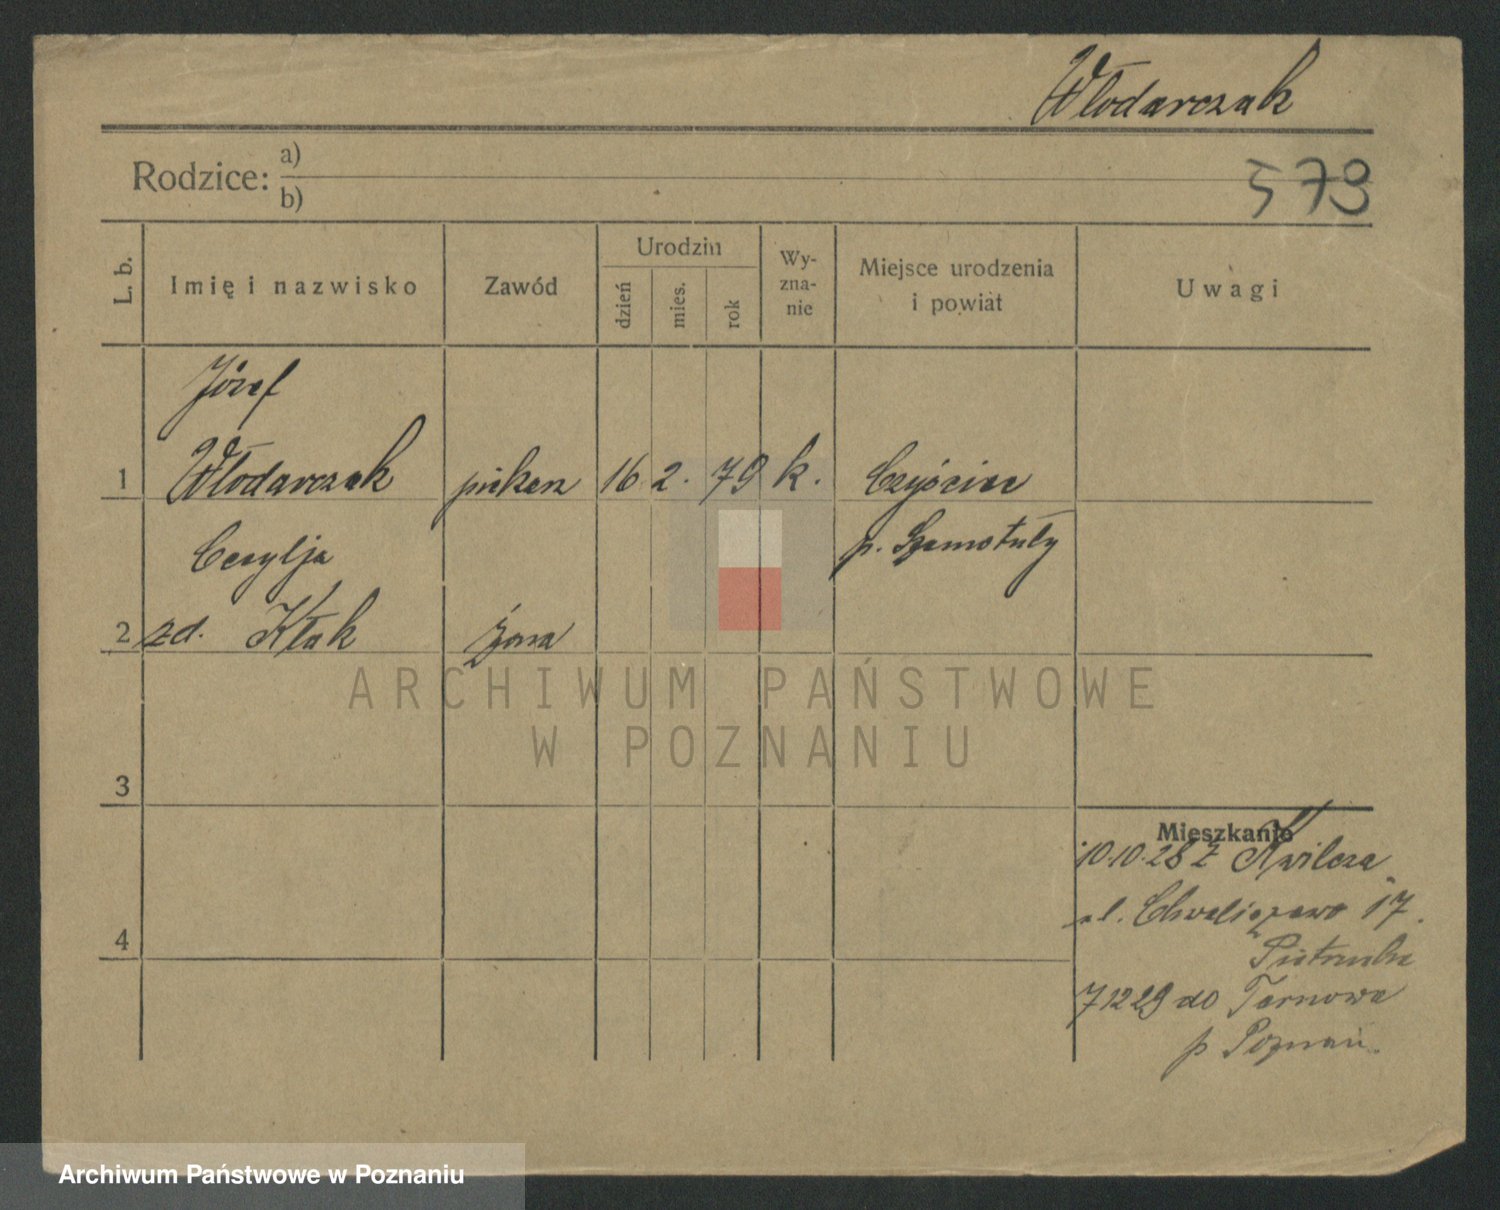 Włodarczak
Rodzice: a)
b)
573
L. b.
Imię i nazwisko
Zawód
Urodzin
dzień
mies.
rok
Wy-
zna-
nie
Miejsce urodzenia
i powiat
Uwagi
Józef
1 Włodarczak piekarz 16 2. 79 k. Czyściec
p. Szamotuły
Cecylja
2 zd. Kłak żona
ARCHIWUM PAŃSTWOWE
W POZNANIU
3
Mieszkanie
10.10.28 z Kwilcza
ul. Chwaliszewo 17.
4
7 12 29 do Tarnowa
p Poznań.
Archiwum Państwowe w Poznaniu